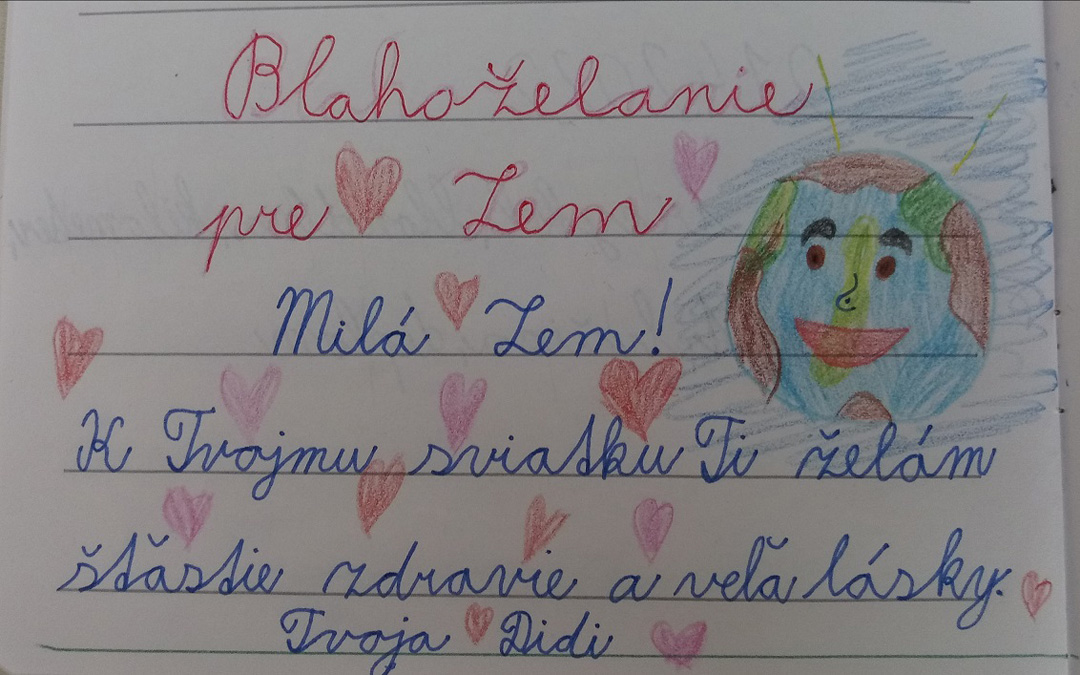 Blahoželanie
pre Zem
Milá Zem!
K Tvojmu sviatku Ti želám
šťastie zdravie a veľa lásky.
Tvoja Didi